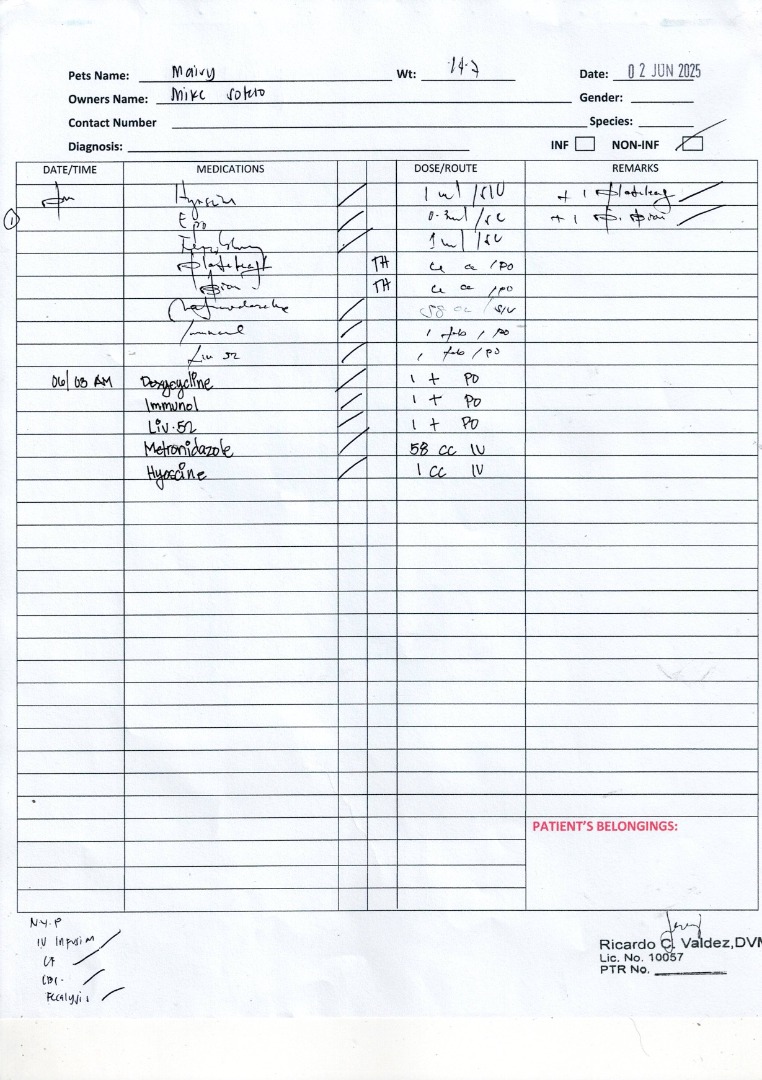 Pets Name: Maivy Wt: 14.7 Date: 02 JUN 2025
Owners Name: Mike Sotero Gender:
Contact Number Species:
Diagnosis: INF NON-INF
DATE/TIME MEDICATIONS DOSE/ROUTE REMARKS
pm Hyoscine 1 ml /SIV + 1
1 Epo 0.3ml /SC + 1
1 ml /SC
TH /PO
TH /PO
58 cc /SIV
Immunol 1 tab / PO
Liv 52 1 tab / PO
06/03 AM Doxycycline 1 t PO
Immunol 1 t PO
Liv.52 1 t PO
Metronidazole 58 cc IV
Hyoscine 1 cc IV
PATIENT'S BELONGINGS:
N.Y.P
IV Infusion
CF
CBC
Fecalysis
Ricardo C. Valdez,DVM
Lic. No. 10057
PTR No.